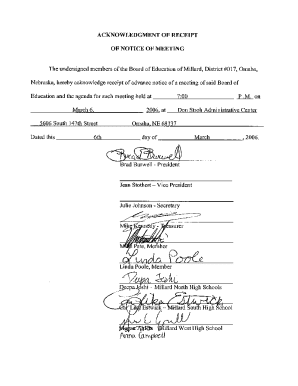 ACKNOWLEDGMENT OF RECEIPT
OF NOTICE OF MEETING
The undersigned members of the Board of Education of Millard, District #017, Omaha,
Nebraska, hereby acknowledge receipt of advance notice of a meeting of said Board of
Education and the agenda for such meeting held at 7:00 P.M. on
March 6, 2006, at Don Stroh Administrative Center
5606 South 147th Street Omaha, NE 68137
Dated this 6th day of March, 2006.
Brad Burwell
Brad Burwell - President
Jean Stothert - Vice President
Julie Johnson - Secretary
Mike Kennedy - Treasurer
Mike Pate, Member
Linda Poole
Linda Poole, Member
Deepa Joshi
Deepa Joshi - Millard North High Schools
Lika Estwick
Lika Estwick - Millard South High School
Millard West High School
Anna Campbell